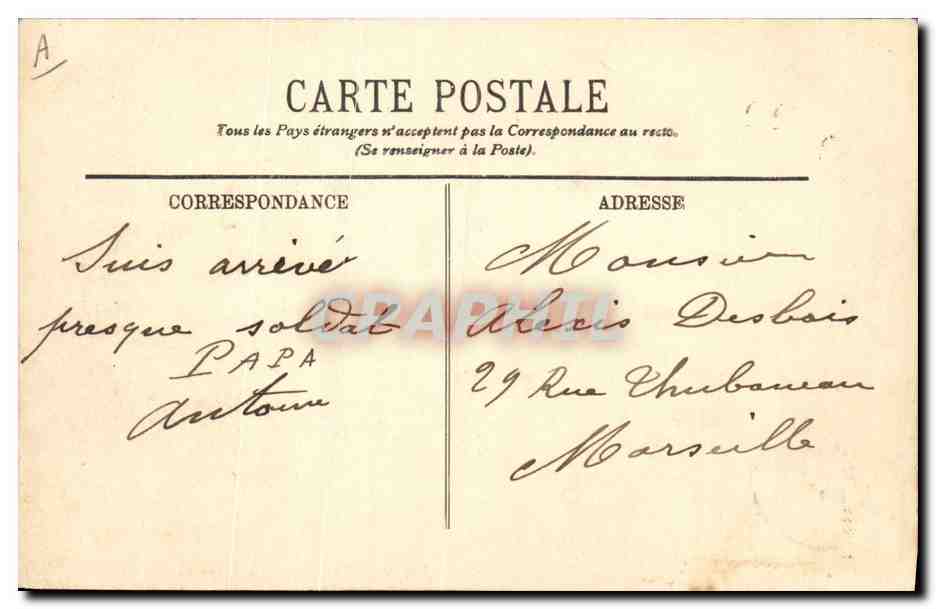 A
CARTE POSTALE
Tous les Pays étrangers n'acceptent pas la Correspondance au recto.
(Se renseigner à la Poste).
CORRESPONDANCE
Suis arrivé
presque soldat
PAPA
Antoine
ADRESSE
Monsieur
Alexis Desbois
29 Rue Thubaneau
Marseille
CPAPHIL